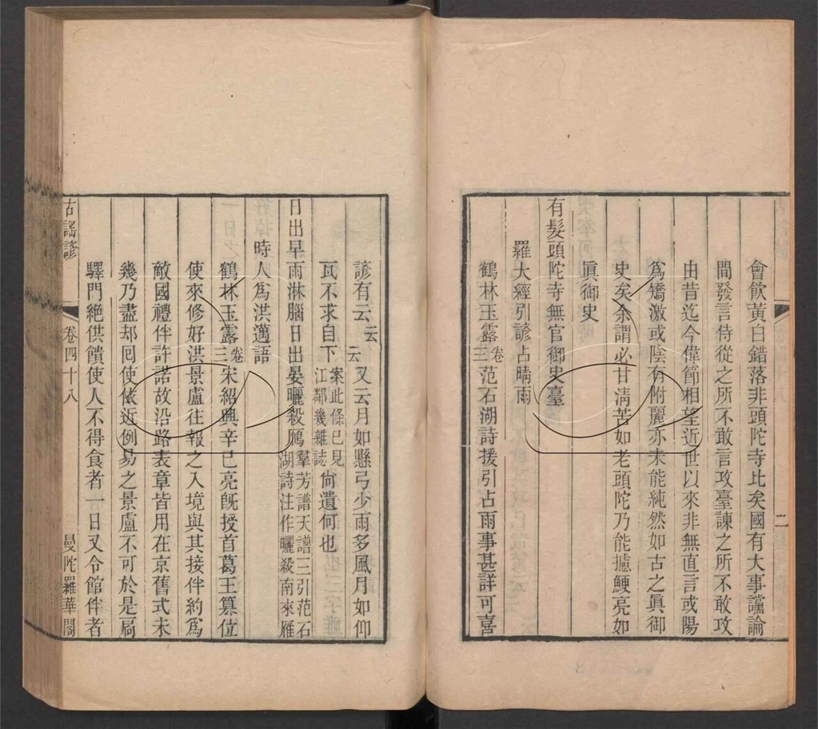 二
會飲黃白錯落非頭陀寺比矣國有大事讜論
間發言侍從之所不敢言攻臺諫之所不敢攻
由昔迄今偉節相望近世以來非無直言或陽
爲矯激或陰有附麗亦未能純然如古之眞御
史矣余謂必甘淸苦如老頭陀乃能攄鯁亮如
眞御史
有髮頭陀寺無官御史臺
羅大經引諺占晴雨
鶴林玉露卷三范石湖詩援引占雨事甚詳可喜
諺有云云云又云月如懸弓少雨多風月如仰
瓦不求自下案此條已見江鄰幾雜誌尙遺何也
日出早雨淋腦日出晏曬殺鴈羣芳譜天譜三引范石湖詩注作曬殺南來雁
時人爲洪邁語
鶴林玉露卷三宋紹興辛巳亮旣授首葛王篡位
使來修好洪景盧往報之入境與其接伴約爲
敵國禮伴許諾故沿路表章皆用在京舊式未
幾乃盡却囘使依近例易之景盧不可於是扃
驛門絕供饋使人不得食者一日又令館伴者
古謠諺 卷四十八 曼陀羅華閣